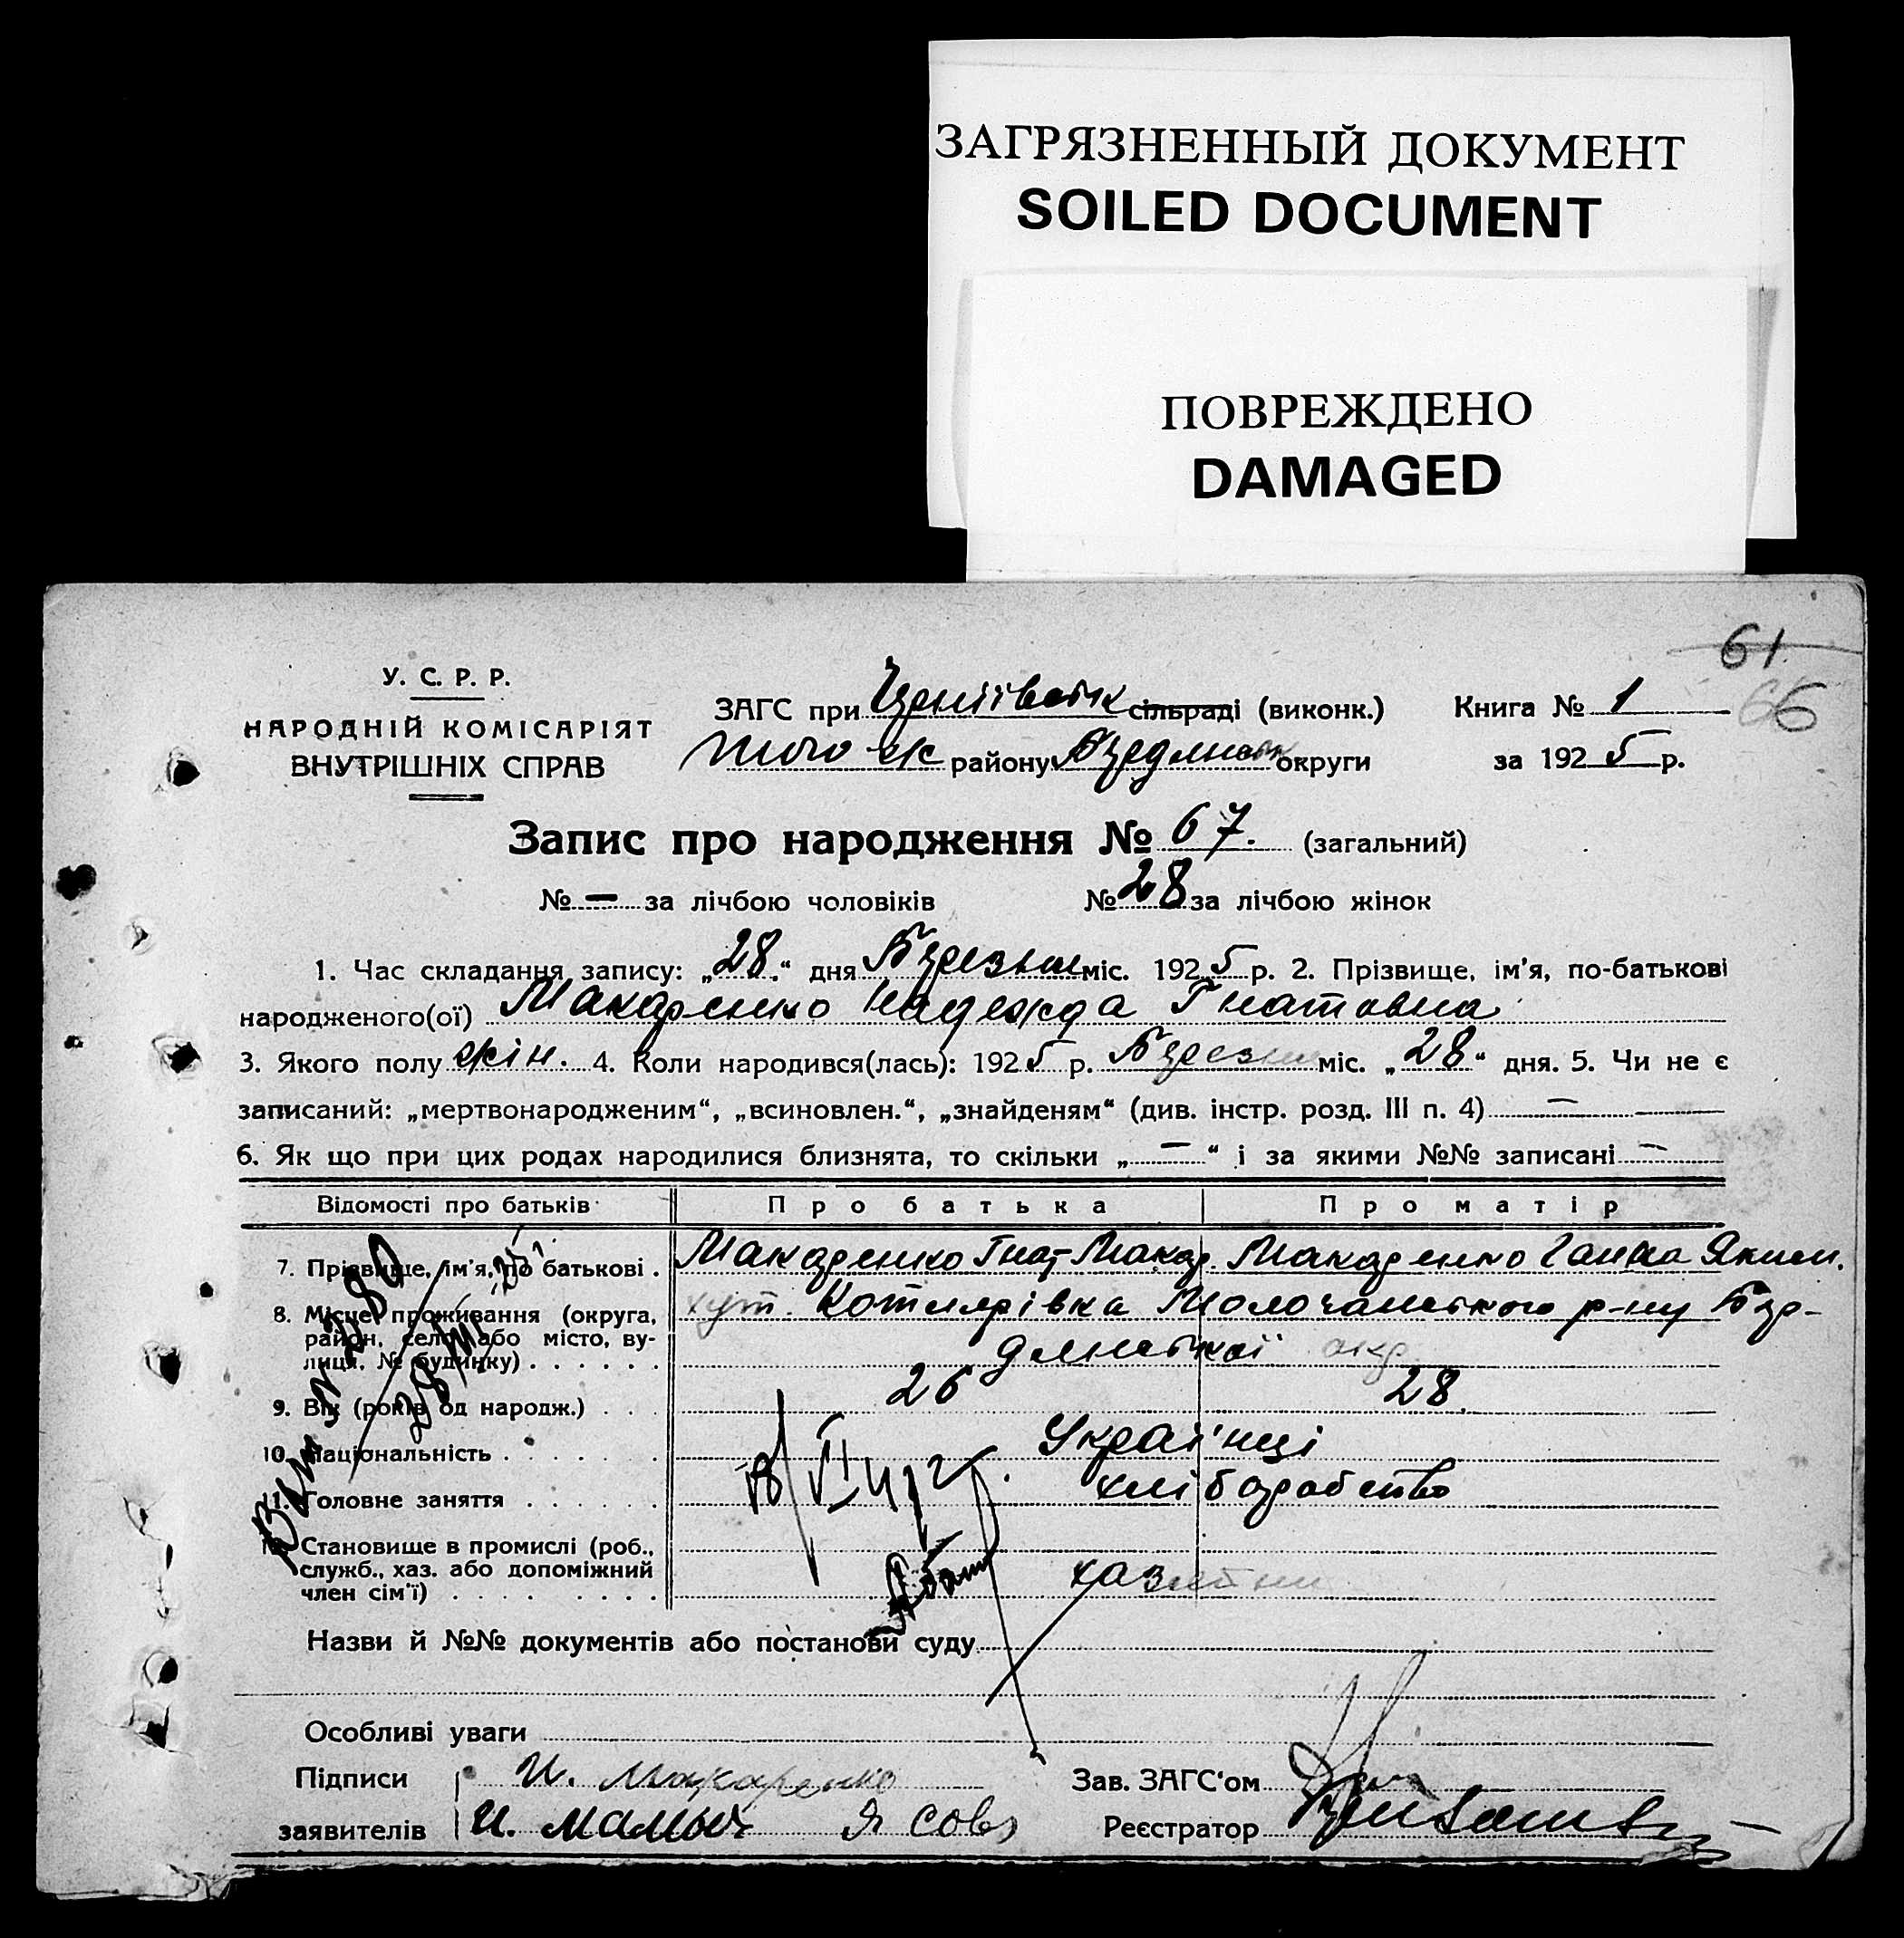 ЗАГРЯЗНЕННЫЙ ДОКУМЕНТ
SOILED DOCUMENT
ПОВРЕЖДЕНО
DAMAGED
61
66
У. С. Р. Р.
НАРОДНІЙ КОМІСАРІЯТ
ВНУТРІШНІХ СПРАВ
ЗАГС при сільраді (виконк.) Книга № 1
району округи за 1925 р.
Запис про народження № 67. (загальний)
№ — за лічбою чоловіків № 28 за лічбою жінок
1. Час складання запису: „28“ дня Березня міс. 1925 р. 2. Прізвище, ім'я, по-батькові
народженого(ої) Макаренко Надежда Гнатовна
3. Якого полу жін. 4. Коли народився(лась): 1925 р. Березня міс. „28“ дня. 5. Чи не є
записаний: „мертвонародженим“, „всиновлен.“, „знайденям“ (див. інстр. розд. III п. 4) —
6. Як що при цих родах народилися близнята, то скільки „—“ і за якими №№ записані —
Відомості про батьків Про батька Про матір
7. Прізвище, ім'я, по батькові . Макаренко Гнат Макар. Макаренко Ганна Яким.
8. Місце проживання (округа, хут. Котлярівка Молочанського р-ну Бер-
район, село, або місто, ву-
лиця, № будинку) . . . . . . дянської окр.
9. Вік (років од народж.) . . . 26 28
10. Національність . . . . . . Українці
11. Головне заняття . . . . . . хліборобство
12. Становище в промислі (роб.,
служб., хаз. або допоміжний
член сім'ї) . . . . . . . .
Назви й №№ документів або постанови суду
Особливі уваги
Підписи И. Макаренко Зав. ЗАГС'ом
заявителів Реєстратор